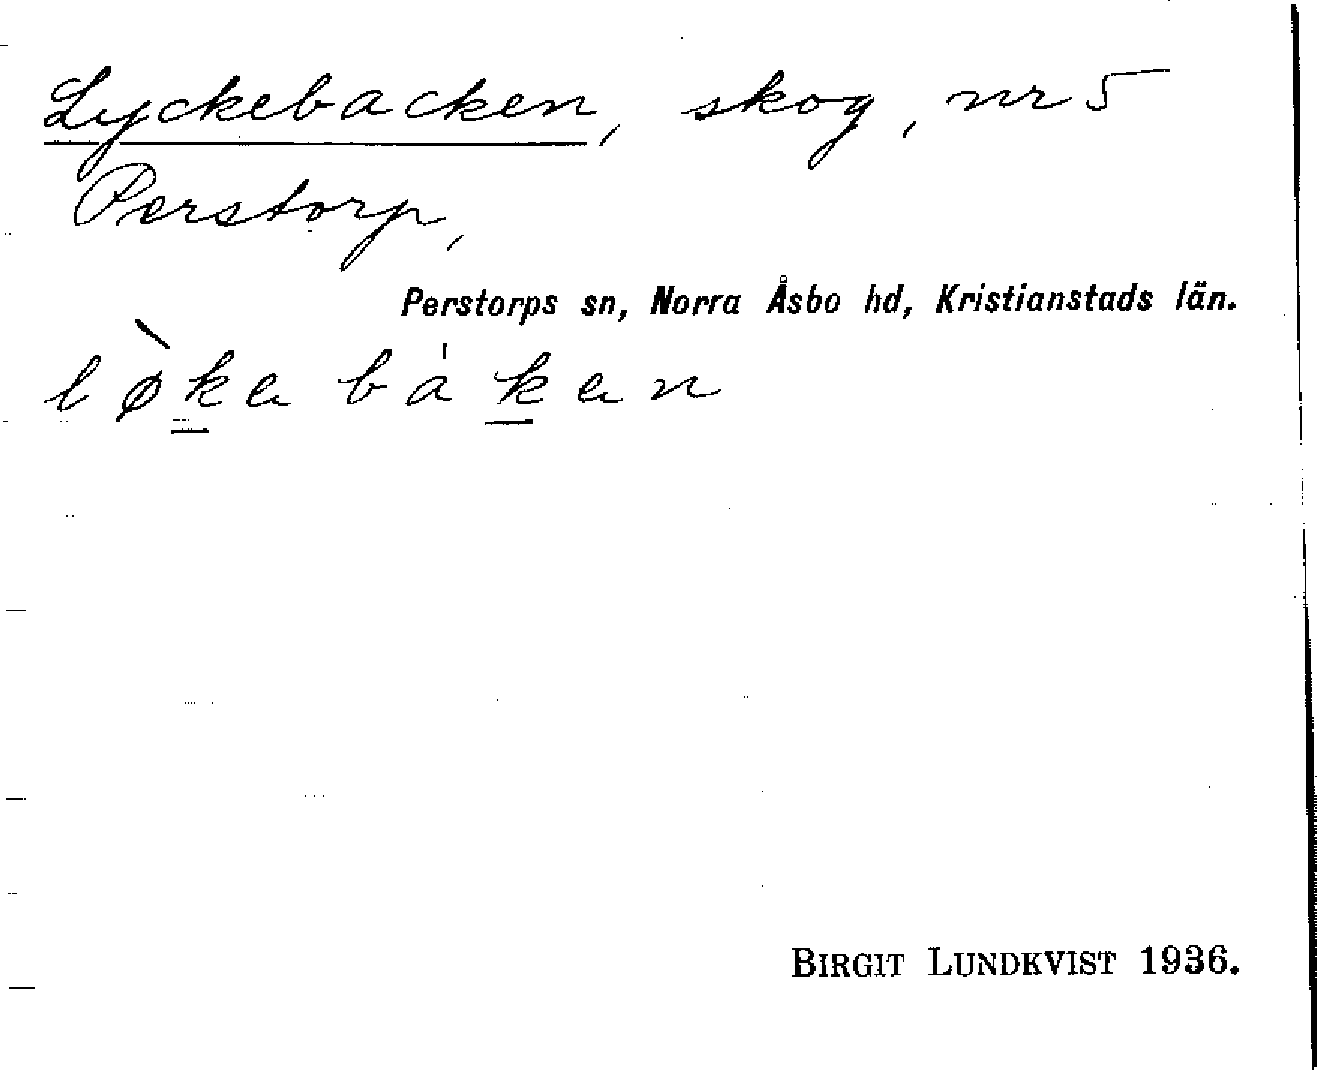 Lyckebacken, skog, nr 5
Perstorp,
Perstorps sn, Norra Åsbo hd, Kristianstads län.
lø̀k̲a bák̲an
BIRGIT LUNDKVIST 1936.